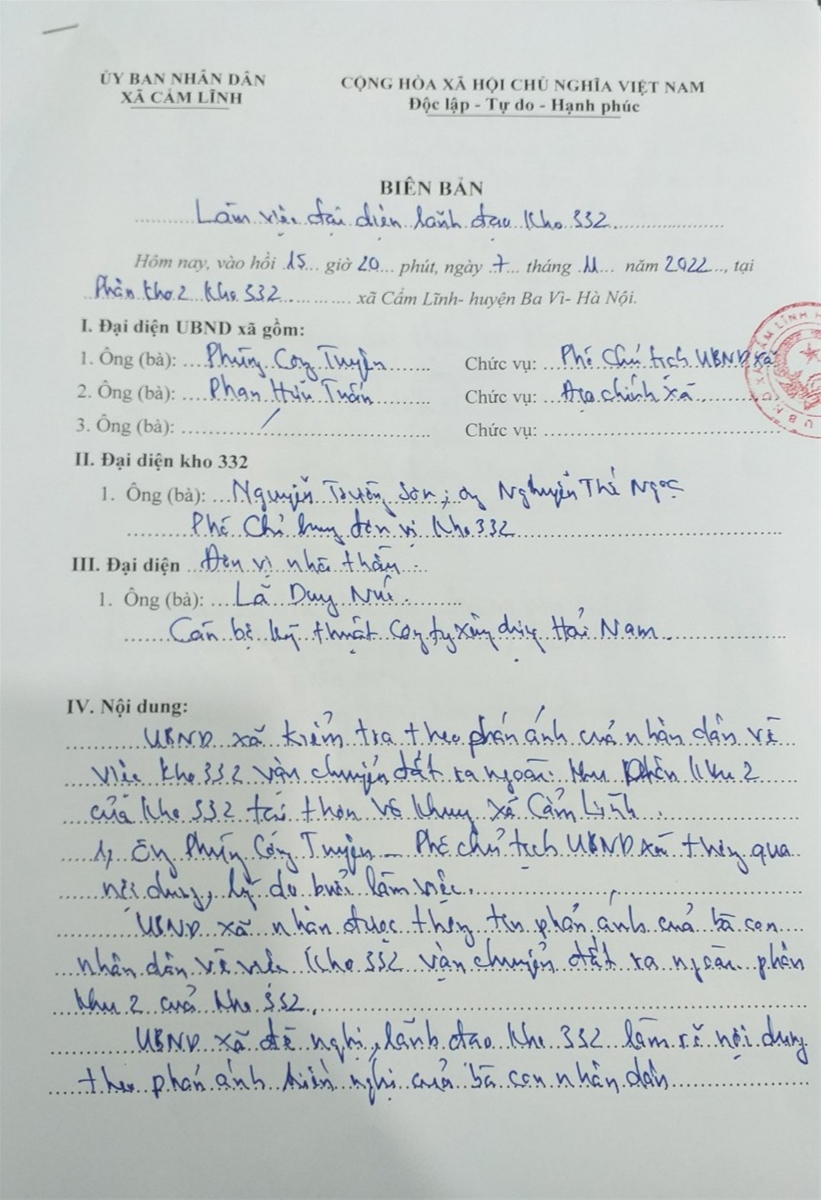 ỦY BAN NHÂN DÂN
XÃ CẨM LĨNH
CỘNG HÒA XÃ HỘI CHỦ NGHĨA VIỆT NAM
Độc lập - Tự do - Hạnh phúc
BIÊN BẢN
Làm việc đại diện lãnh đạo Kho 332
Hôm nay, vào hồi 15 giờ 20 phút, ngày 7 tháng 11 năm 2022, tại
Phân kho 2 Kho 332 xã Cẩm Lĩnh- huyện Ba Vì- Hà Nội.
I. Đại diện UBND xã gồm:
1. Ông (bà): Phùng Công Tuyện Chức vụ: Phó Chủ tịch UBND xã
2. Ông (bà): Phan Hữu Tuấn Chức vụ: Địa chính xã
3. Ông (bà): / Chức vụ:
II. Đại diện kho 332
1. Ông (bà): Nguyễn Trường Sơn; ông Nguyễn Thế Ngọc
Phó Chỉ huy đơn vị Kho 332
III. Đại diện Đơn vị nhà thầu.
1. Ông (bà): Lã Duy
Cán bộ kỹ thuật Công ty xây dựng Hải Nam.
IV. Nội dung:
UBND xã kiểm tra theo phản ánh của nhân dân về
việc kho 332 vận chuyển đất ra ngoài. Khu phân khu 2
của Kho 332 tại thôn Vô Khuy xã Cẩm Lĩnh.
1, Ông Phùng Công Tuyện - Phó chủ tịch UBND xã thông qua
nội dung, lý do buổi làm việc.
UBND xã nhận được thông tin phản ánh của bà con
nhân dân về việc Kho 332 vận chuyển đất ra ngoài phân
khu 2 của kho 332.
UBND xã đề nghị, lãnh đạo kho 332 làm rõ nội dung
theo phản ánh kiến nghị của bà con nhân dân